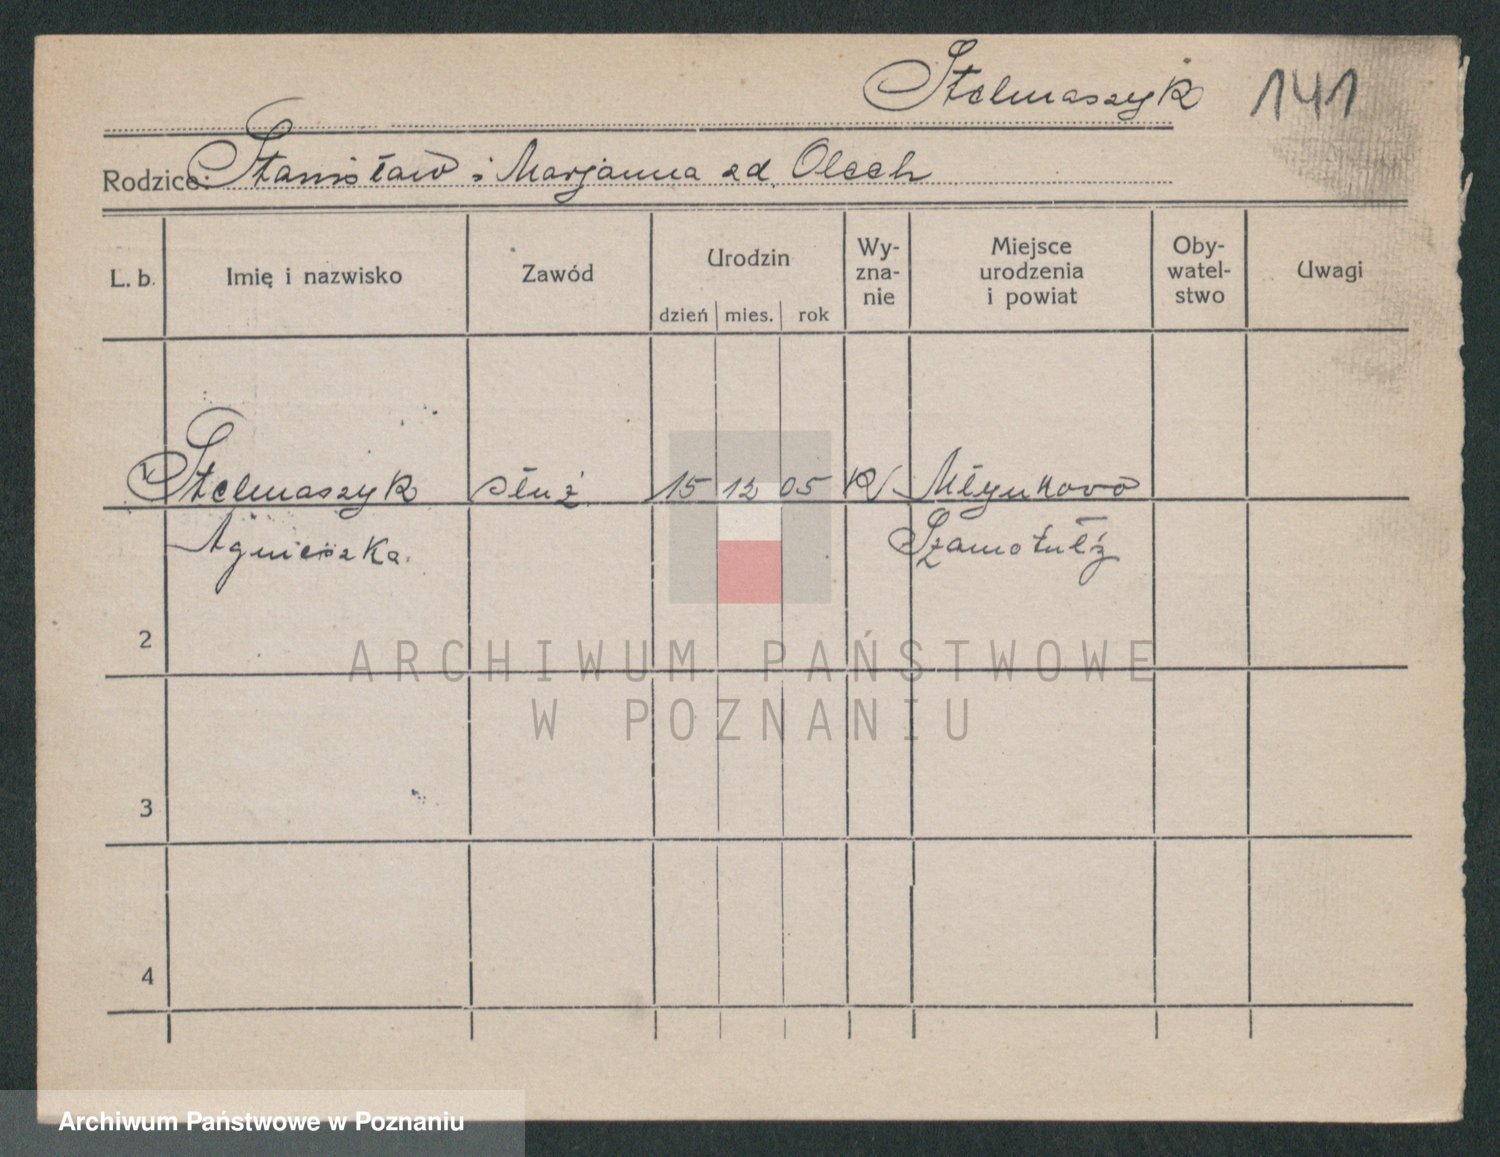 Stelmaszyk 141
Rodzice: Stanisław i Marjanna zd. Olech
L. b. Imię i nazwisko Zawód Urodzin Wy-zna-nie Miejsce urodzenia i powiat Oby-watel-stwo Uwagi
dzień mies. rok
1 Stelmaszyk służ 15 12 05 Rk Młynkowo
Agnieszka.
2
3
4
ARCHIWUM PAŃSTWOWE
W POZNANIU
Archiwum Państwowe w Poznaniu